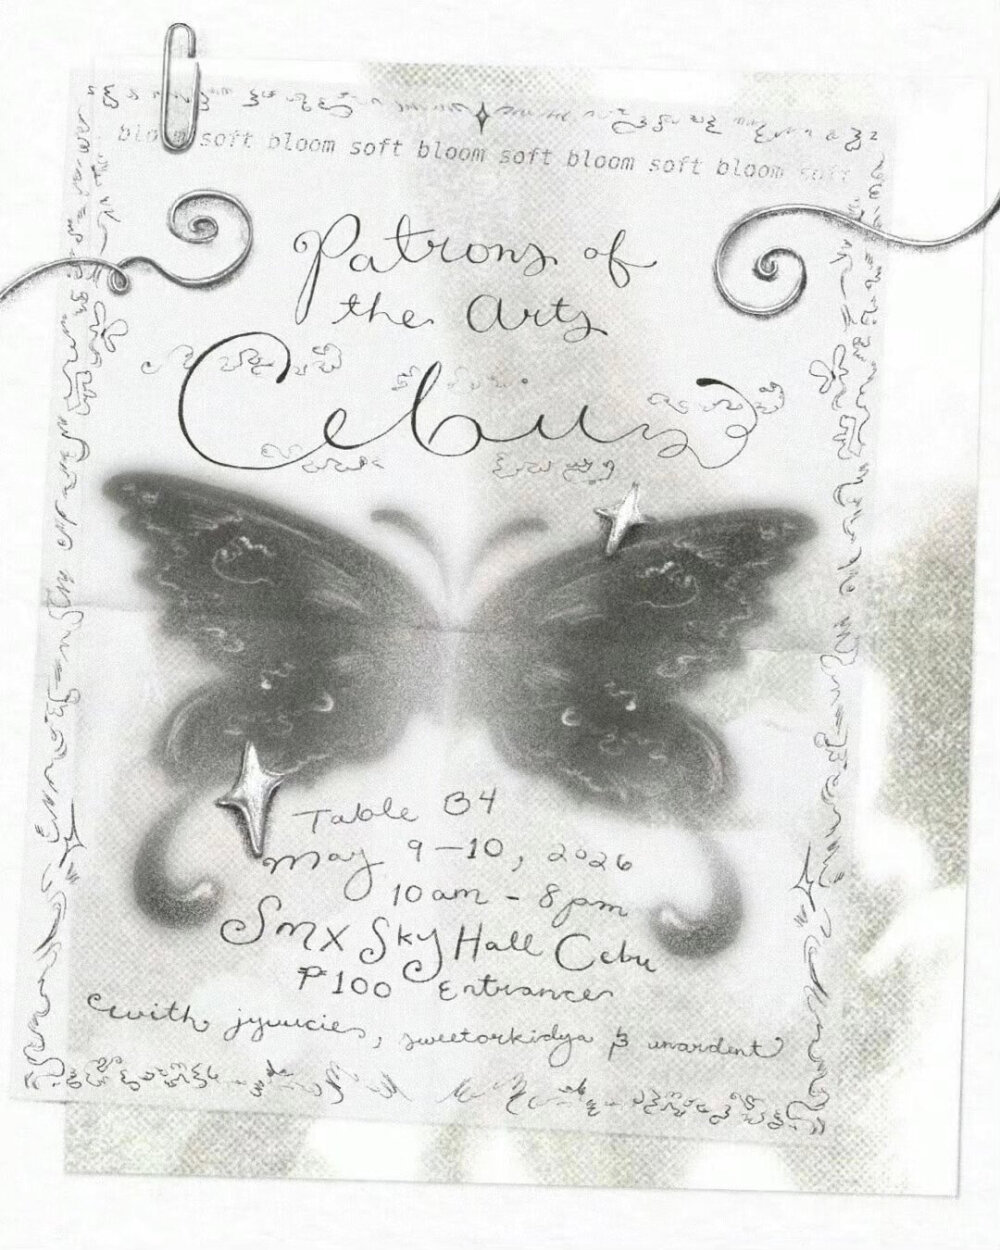 bloom soft bloom soft bloom soft bloom soft bloom soft
Patrons of
the Arts
Cebu
Table B4
May 9-10, 2026
10am - 8pm
Smx Sky Hall Cebu
₱100 Entrance
with jyuucies, sweetorkidya & unardent